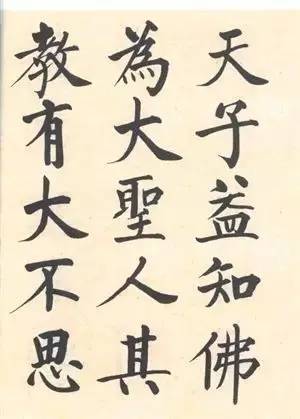 天子益知佛
為大聖人其
教有大不思